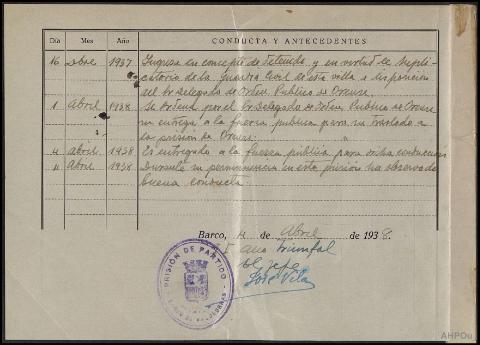 Día Mes Año CONDUCTA Y ANTECEDENTES
16 dbre 1937 Ingresa en concepto de detenido y en virtud de suplicatorio
de la Guardia Civil de esta villa a disposición
del Sr Delegado de Orden Publico de Orense.
1 Abril 1938 Se ordena por el Sr Delegado de Orden Publico de Orense
su entrega a la fuerza publica para su traslado a
la prisión de Orense.
4 abril 1938 Es entregado a la fuerza pública para dicha conduccion
Abril 1938 Durante su permanencia en esta prisión ha observado
buena conducta
Barco, de Abril de 1938.
año triunfal
El Jefe
José Vila
PRISIÓN DE PARTIDO
AHPOu